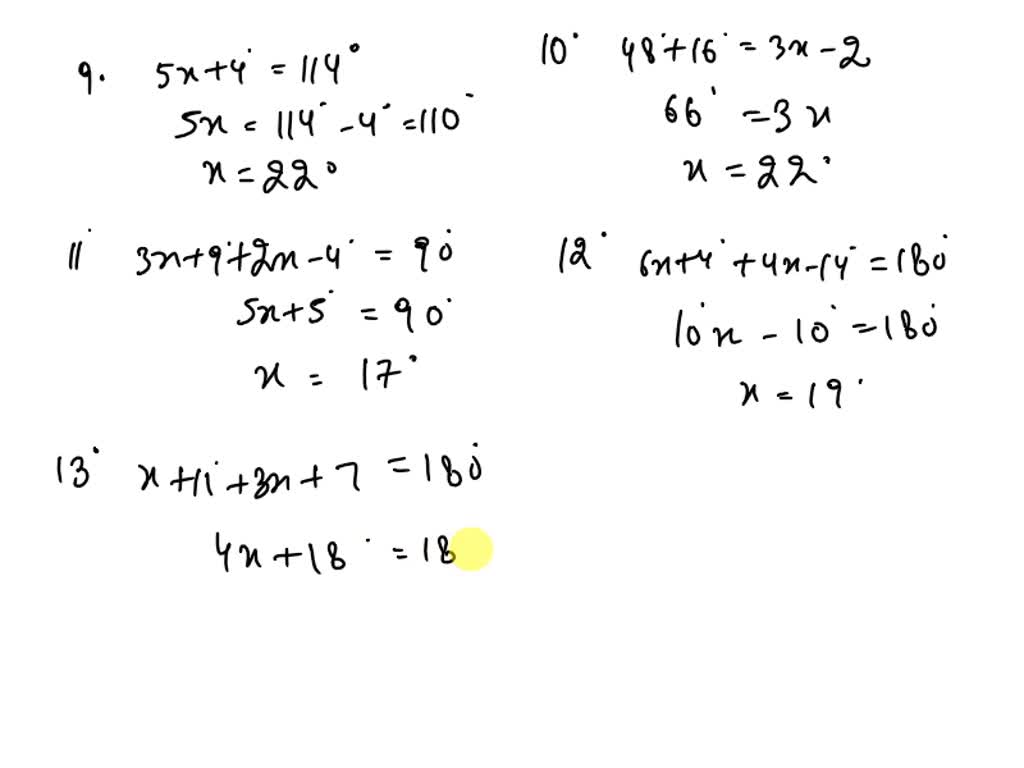 9. 5x+4° = 114°
5x = 114° - 4° = 110°
x = 22°
10° 48°+16° = 3x - 2
66° = 3x
x = 22°
11 3x+9°+2x-4° = 90°
5x+5° = 90°
x = 17°
12° 6x+4°+4x-14° = 180°
10°x - 10° = 180°
x = 19°
13° x+11°+3x+7 = 180°
4x+18° = 18